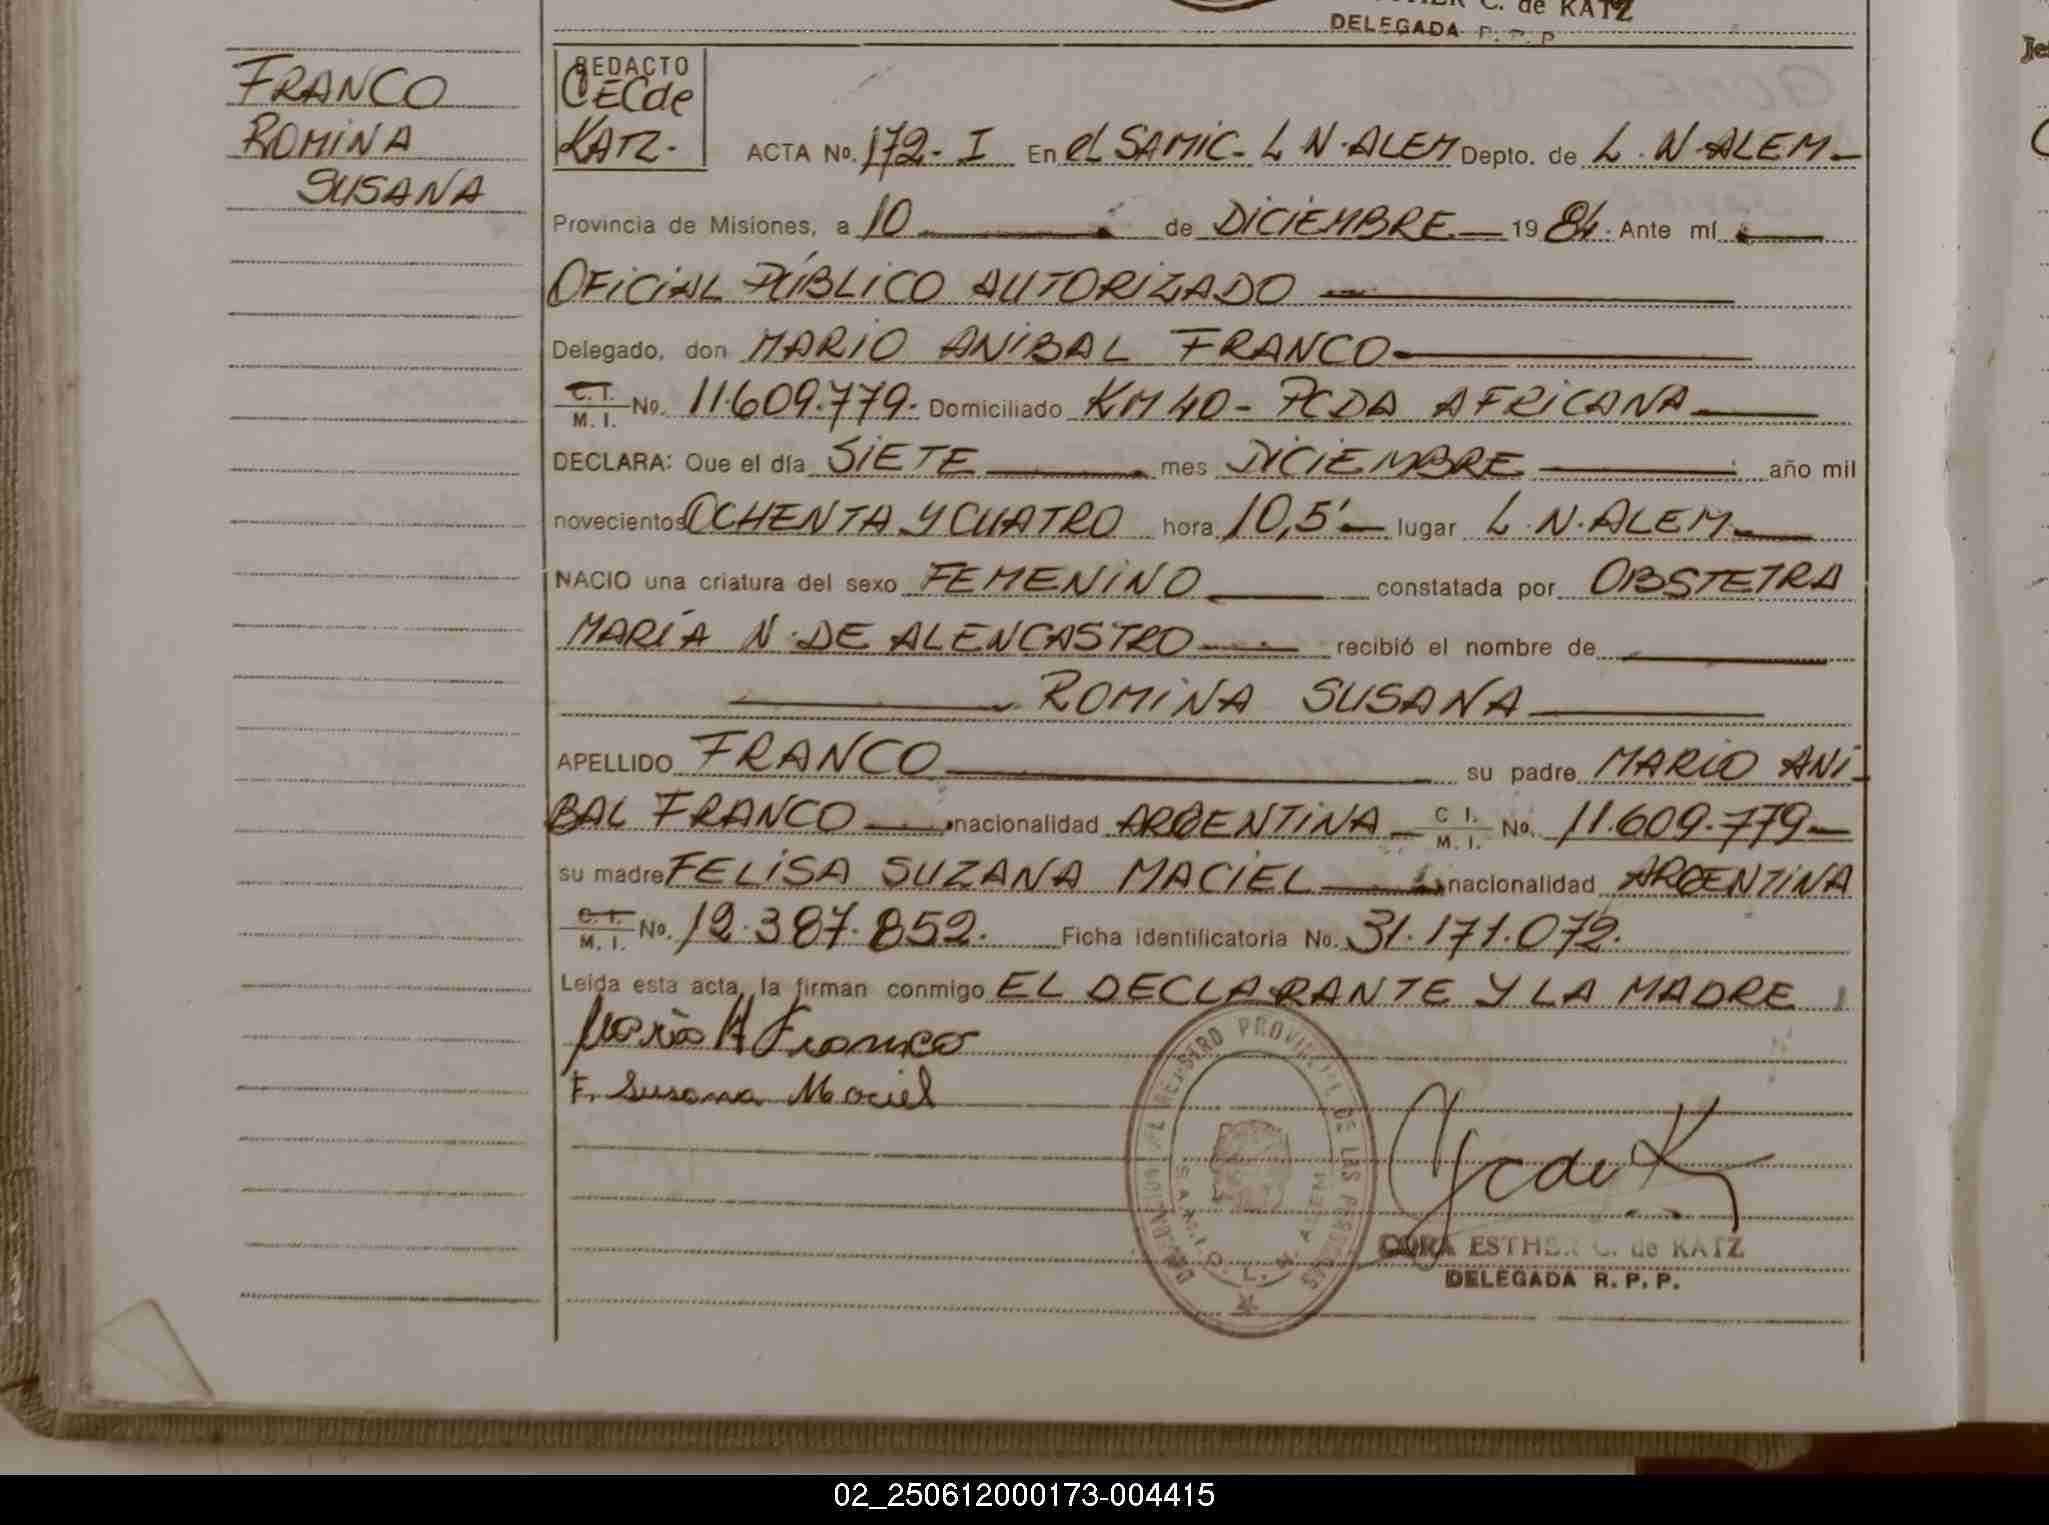 C. de KATZ
DELEGADA R. P. P.
FRANCO
ROMINA
SUSANA
REDACTO
CECde
KATZ.
ACTA No. 172 - I En el SAMIC - L N. ALEM Depto. de L. N. ALEM -
Provincia de Misiones, a 10 de DICIEMBRE 1984. Ante mí
OFICIAL PÚBLICO AUTORIZADO
Delegado, don MARIO ANIBAL FRANCO
C. I.
M. I. No. 11.609.779. Domiciliado KM 40 - PCDA AFRICANA
DECLARA: Que el día SIETE mes DICIEMBRE año mil
novecientos OCHENTA Y CUATRO hora 10,5' lugar L. N. ALEM
NACIO una criatura del sexo FEMENINO constatada por OBSTETRA
MARÍA N. DE ALENCASTRO recibió el nombre de
ROMINA SUSANA
APELLIDO FRANCO su padre MARIO ANI-
BAL FRANCO nacionalidad ARGENTINA C I.
M. I. No. 11.609.779
su madre FELISA SUZANA MACIEL nacionalidad ARGENTINA
C. I.
M. I. No. 12.387.852. Ficha identificatoria No. 31.171.072.
Leída esta acta, la firman conmigo EL DECLARANTE Y LA MADRE
Mario A Franco
F. Susana Maciel
REGISTRO PROVINCIAL DE LAS PERSONAS
L. N. ALEM
CORA ESTHER C. de KATZ
DELEGADA R. P. P.
02_250612000173-004415